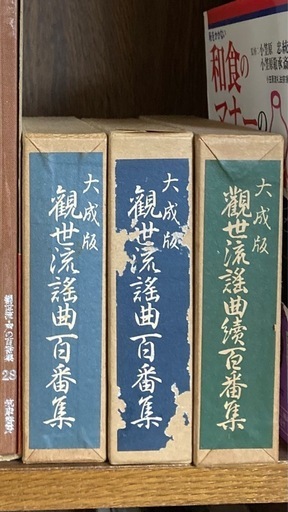 大成版
觀世流謡曲百番集
大成版
觀世流謡曲百番集
大成版
觀世流謡曲續百番集
和食の
マナーの
28